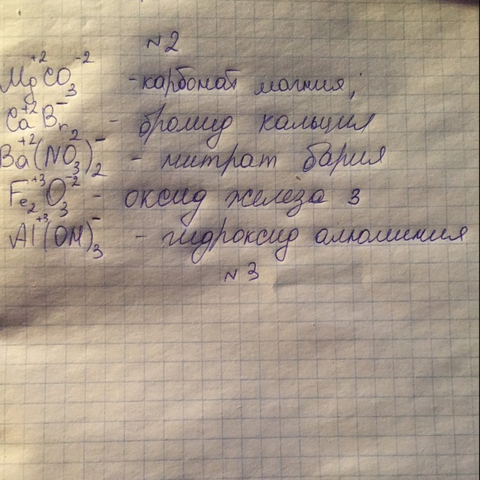 №2
Mg⁺²CO₃⁻² - карбонат магния;
Ca⁺²Br₂⁻ - бромид кальция
Ba⁺²(NO₃)₂⁻ - нитрат бария
Fe₂⁺³O₃⁻² - оксид железа 3
Al⁺³(OH)₃⁻ - гидроксид алюминия
№3